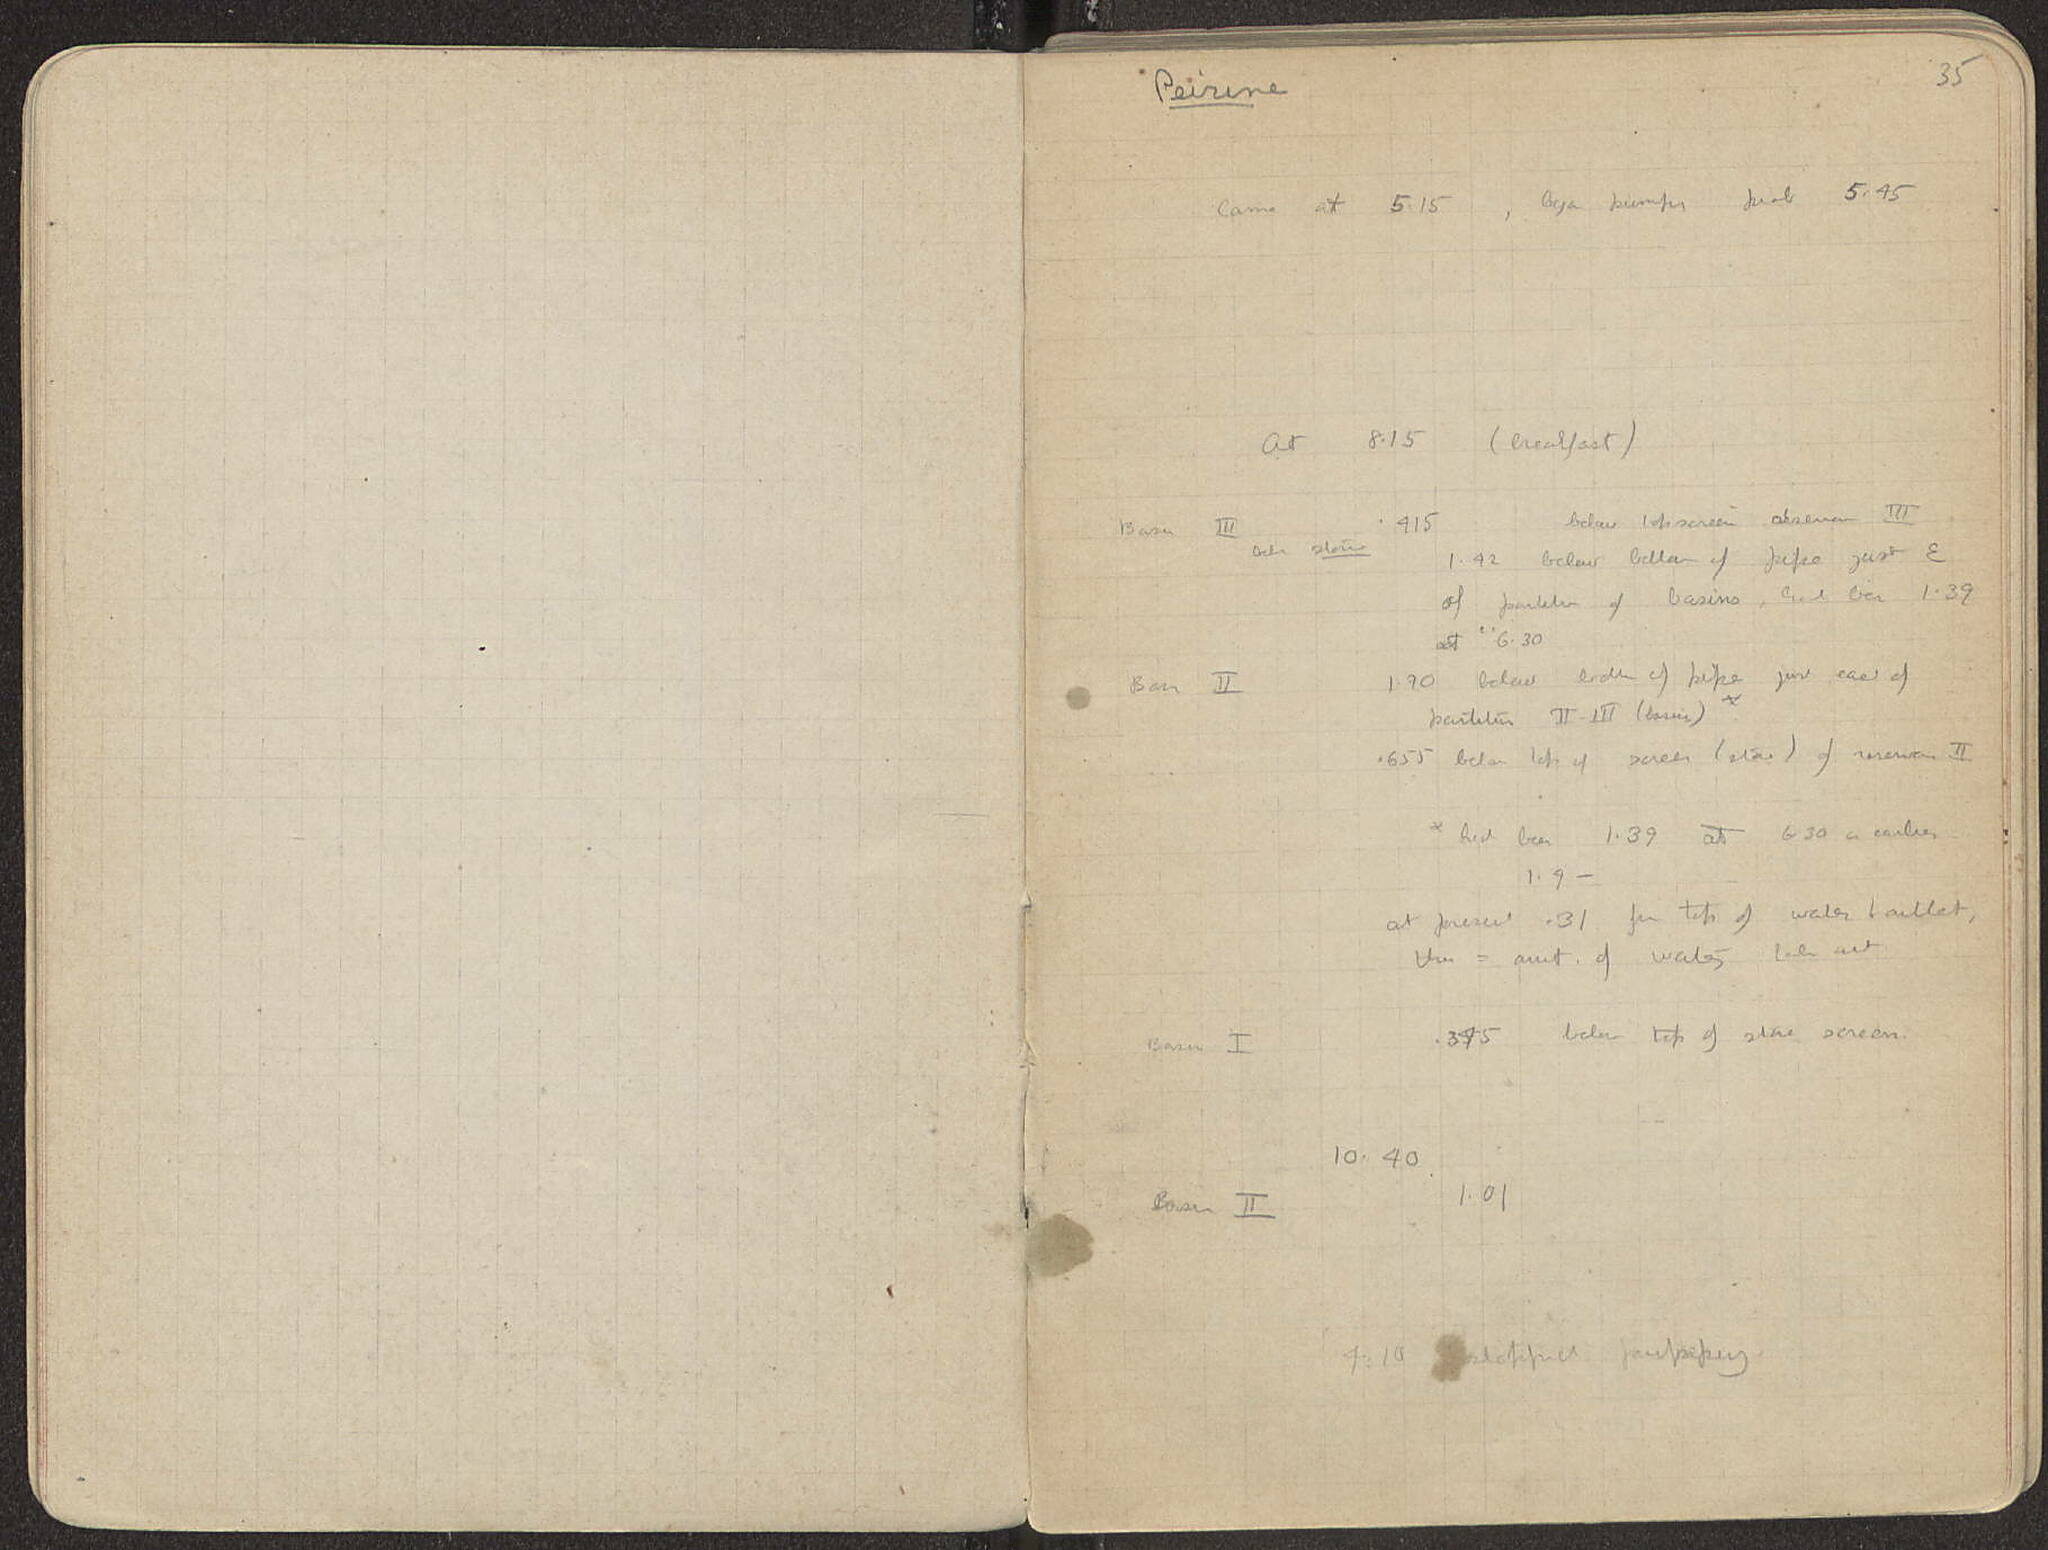 35
Peirene
Came at 5.15, began pumping prob 5.45
At 8.15 (breakfast)
Basin III .415 below top screen reservoir III
below stone
1.42 below bottom of pipe just E
of partition of basins, had been 1.39
at 6.30
Basin II 1.90 below bottom of pipe just east of
partition II-III (basin) *
.655 below top of screen (stone) of reservoir II
* had been 1.39 at 6.30 or earlier
1.9 –
at present .31 from top of water outlet,
thus = amt. of water taken out
Basin I below top of stone screen.
10.40
Basin II 1.01
4.10 stopped pumping